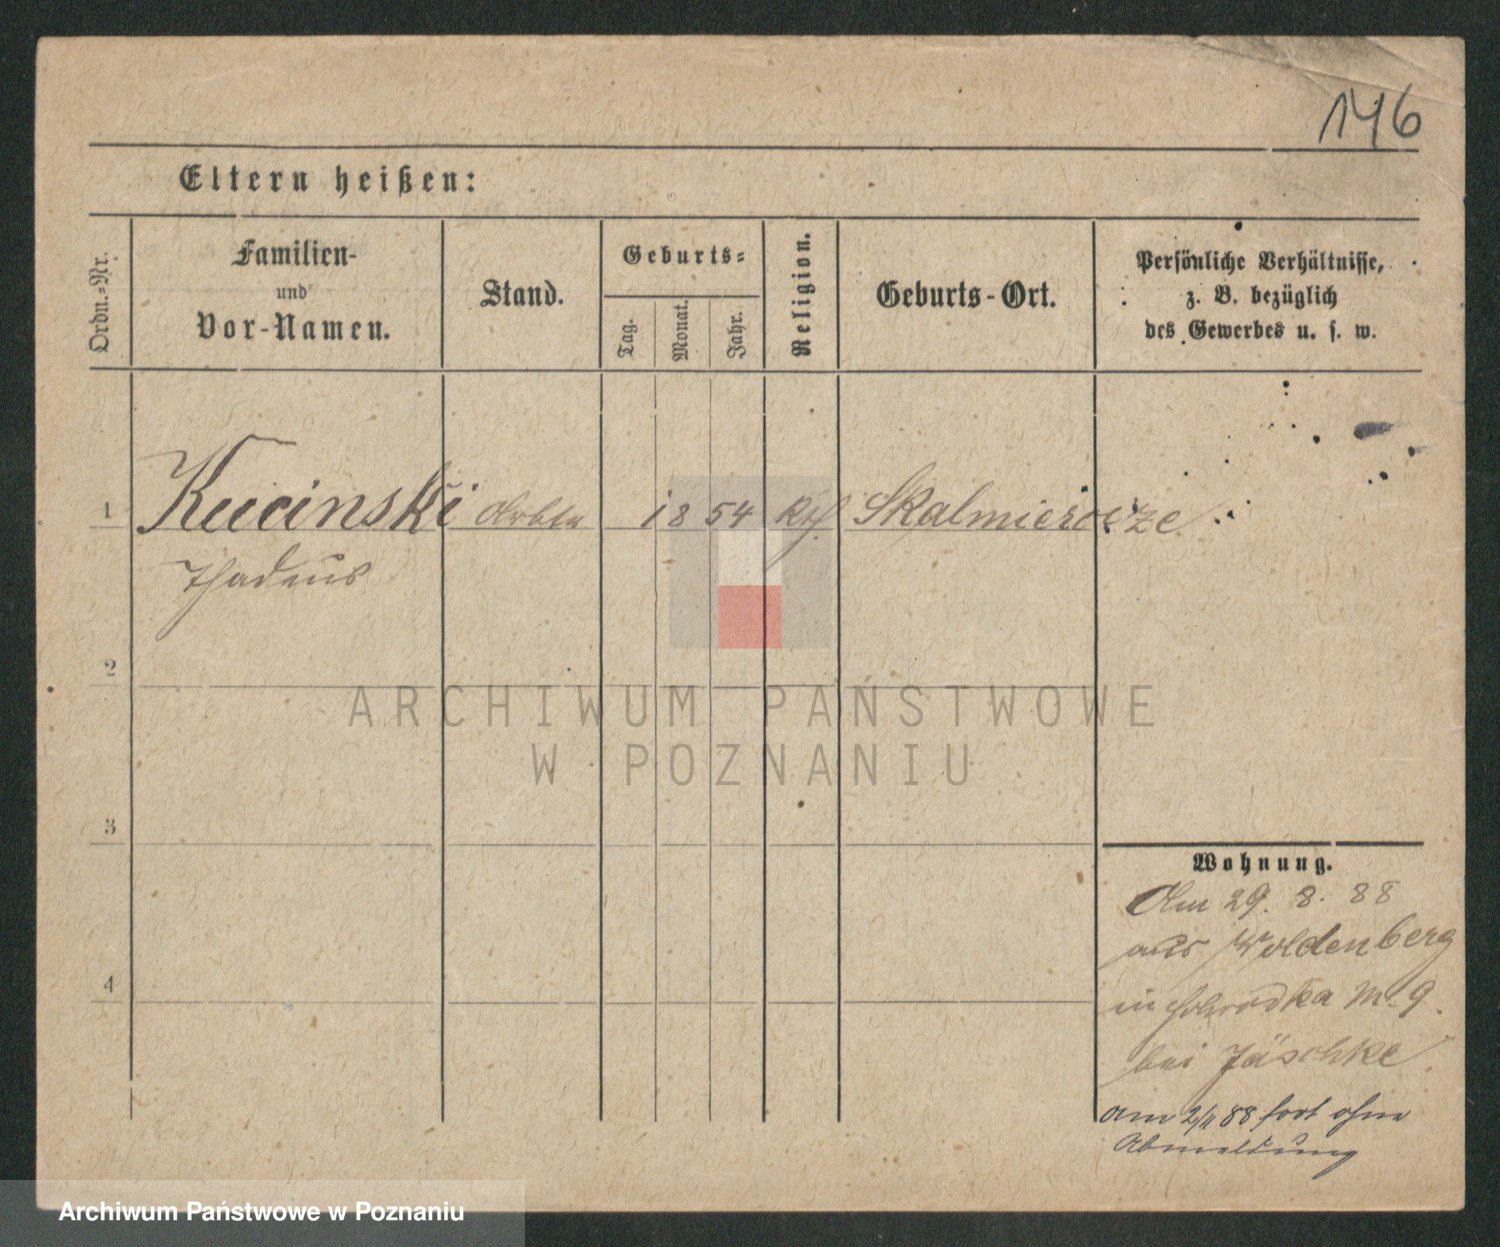 146
Eltern heißen:
Ordn.-Nr.
Familien-
und
Vor-Namen.
Stand.
Geburts-
Tag.
Monat.
Jahr.
Religion.
Geburts-Ort.
Persönliche Verhältnisse,
z. B. bezüglich
des Gewerbes u. s. w.
1 Kucinski Arbtr 1854 Kth Skalmierze
Thadeus
2
3
4
Wohnung.
Am 29. 8. 88
aus Woldenberg
in Schrodka No 9.
bei Jäschke
am 2/11 88 fort ohne
Abmeldung
ARCHIWUM PAŃSTWOWE
W POZNANIU
Archiwum Państwowe w Poznaniu